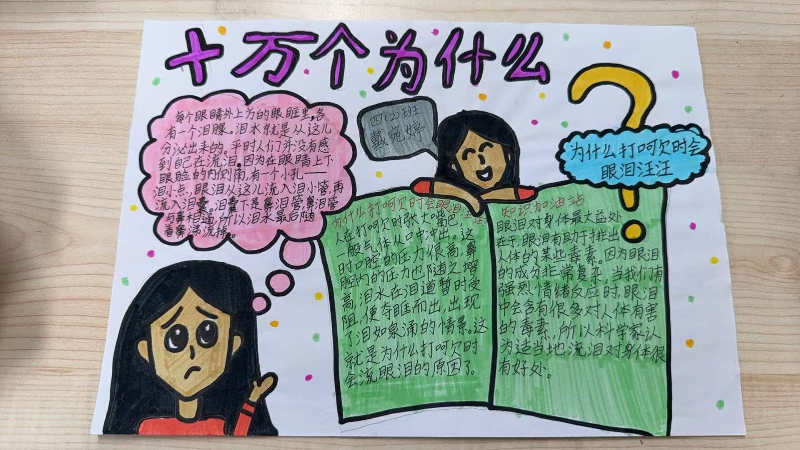 十万个为什么
每个眼睛外上方的眼眶里,各
有一个泪腺。泪水就是从这儿
分泌出来的。平时人们并没有感
到自己在流泪。因为在眼睛上下
眼睑的内侧角,有一个小孔——
泪小点,眼泪从这儿流入泪小管,再
流入泪囊,泪囊下是鼻泪管,鼻泪管
与鼻相通,所以泪水最后随
着鼻涕流掉。
四(2)班
戴宛婷
为什么打呵欠时会
眼泪汪汪
为什么打呵欠时会眼泪汪汪
人在打呵欠时张大嘴巴,
一股气体从口中冲出。这
时口腔的压力很高,鼻
腔内的压力也随之增
高,泪水在泪道暂时受
阻,便夺眶而出,出现
了泪如泉涌的情景。这
就是为什么打呵欠时
会流眼泪的原因了。
知识加油站
眼泪对身体最大益处
在于,眼泪有助于排出
人体的某些毒素。因为眼泪
的成分非常复杂,当我们有
强烈情绪反应时,眼泪
中会含有很多对人体有害
的毒素,所以科学家认
为适当地流泪对身体很
有好处。